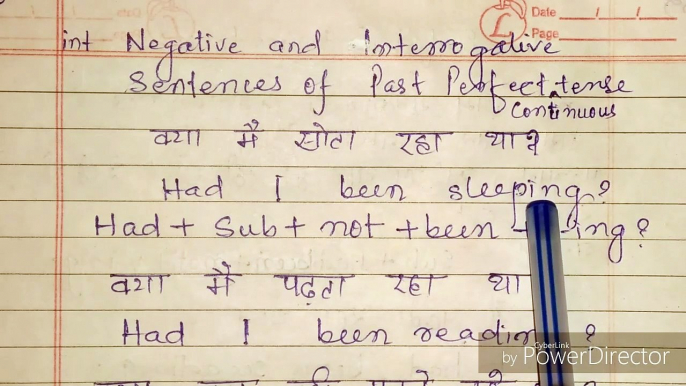 Date / /
Page
int Negative and Interrogative
Sentences of Past Perfect tense
Continuous
क्या मैं सोता रहा था?
Had I been sleeping?
Had + Sub + not + been + ing?
क्या मैं पढ़ता रहा था
Had I been reading ?
CyberLink
by PowerDirector